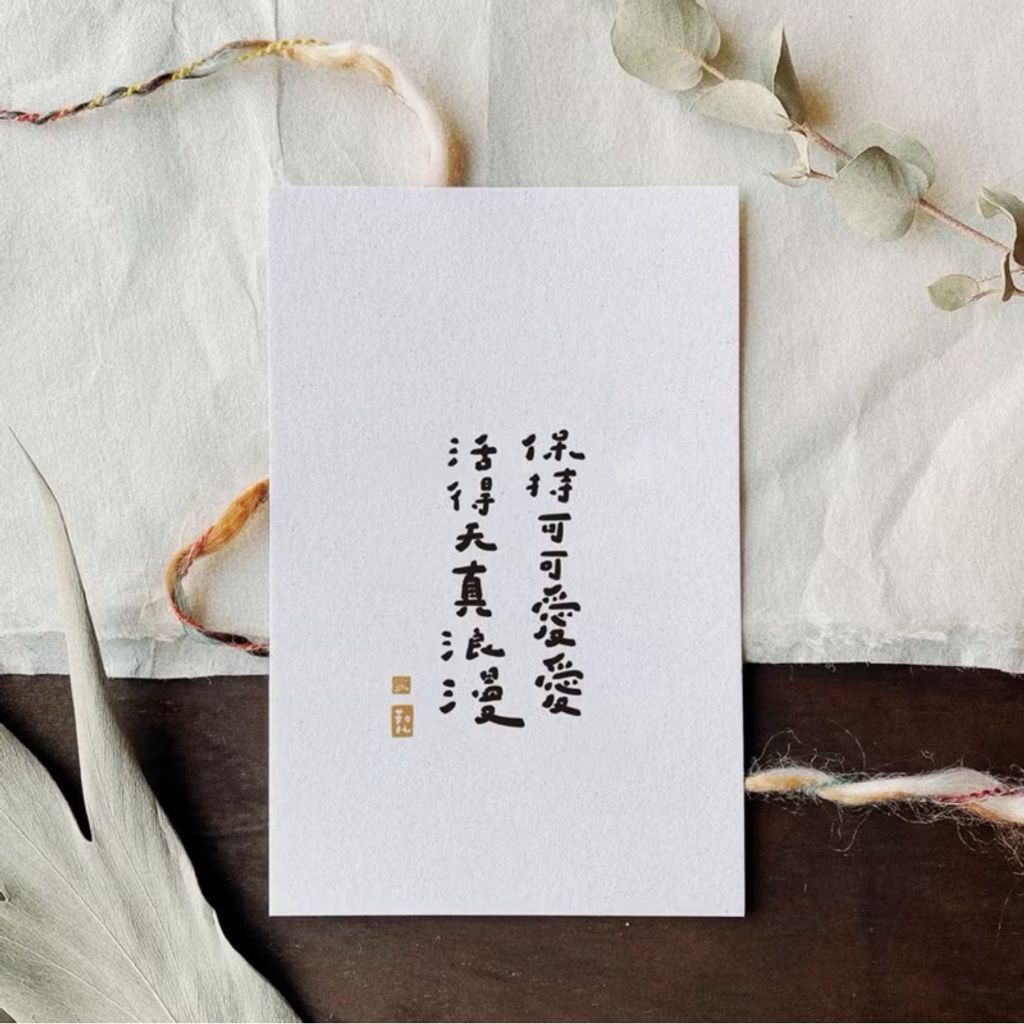 保持可可愛愛
活得天真浪漫